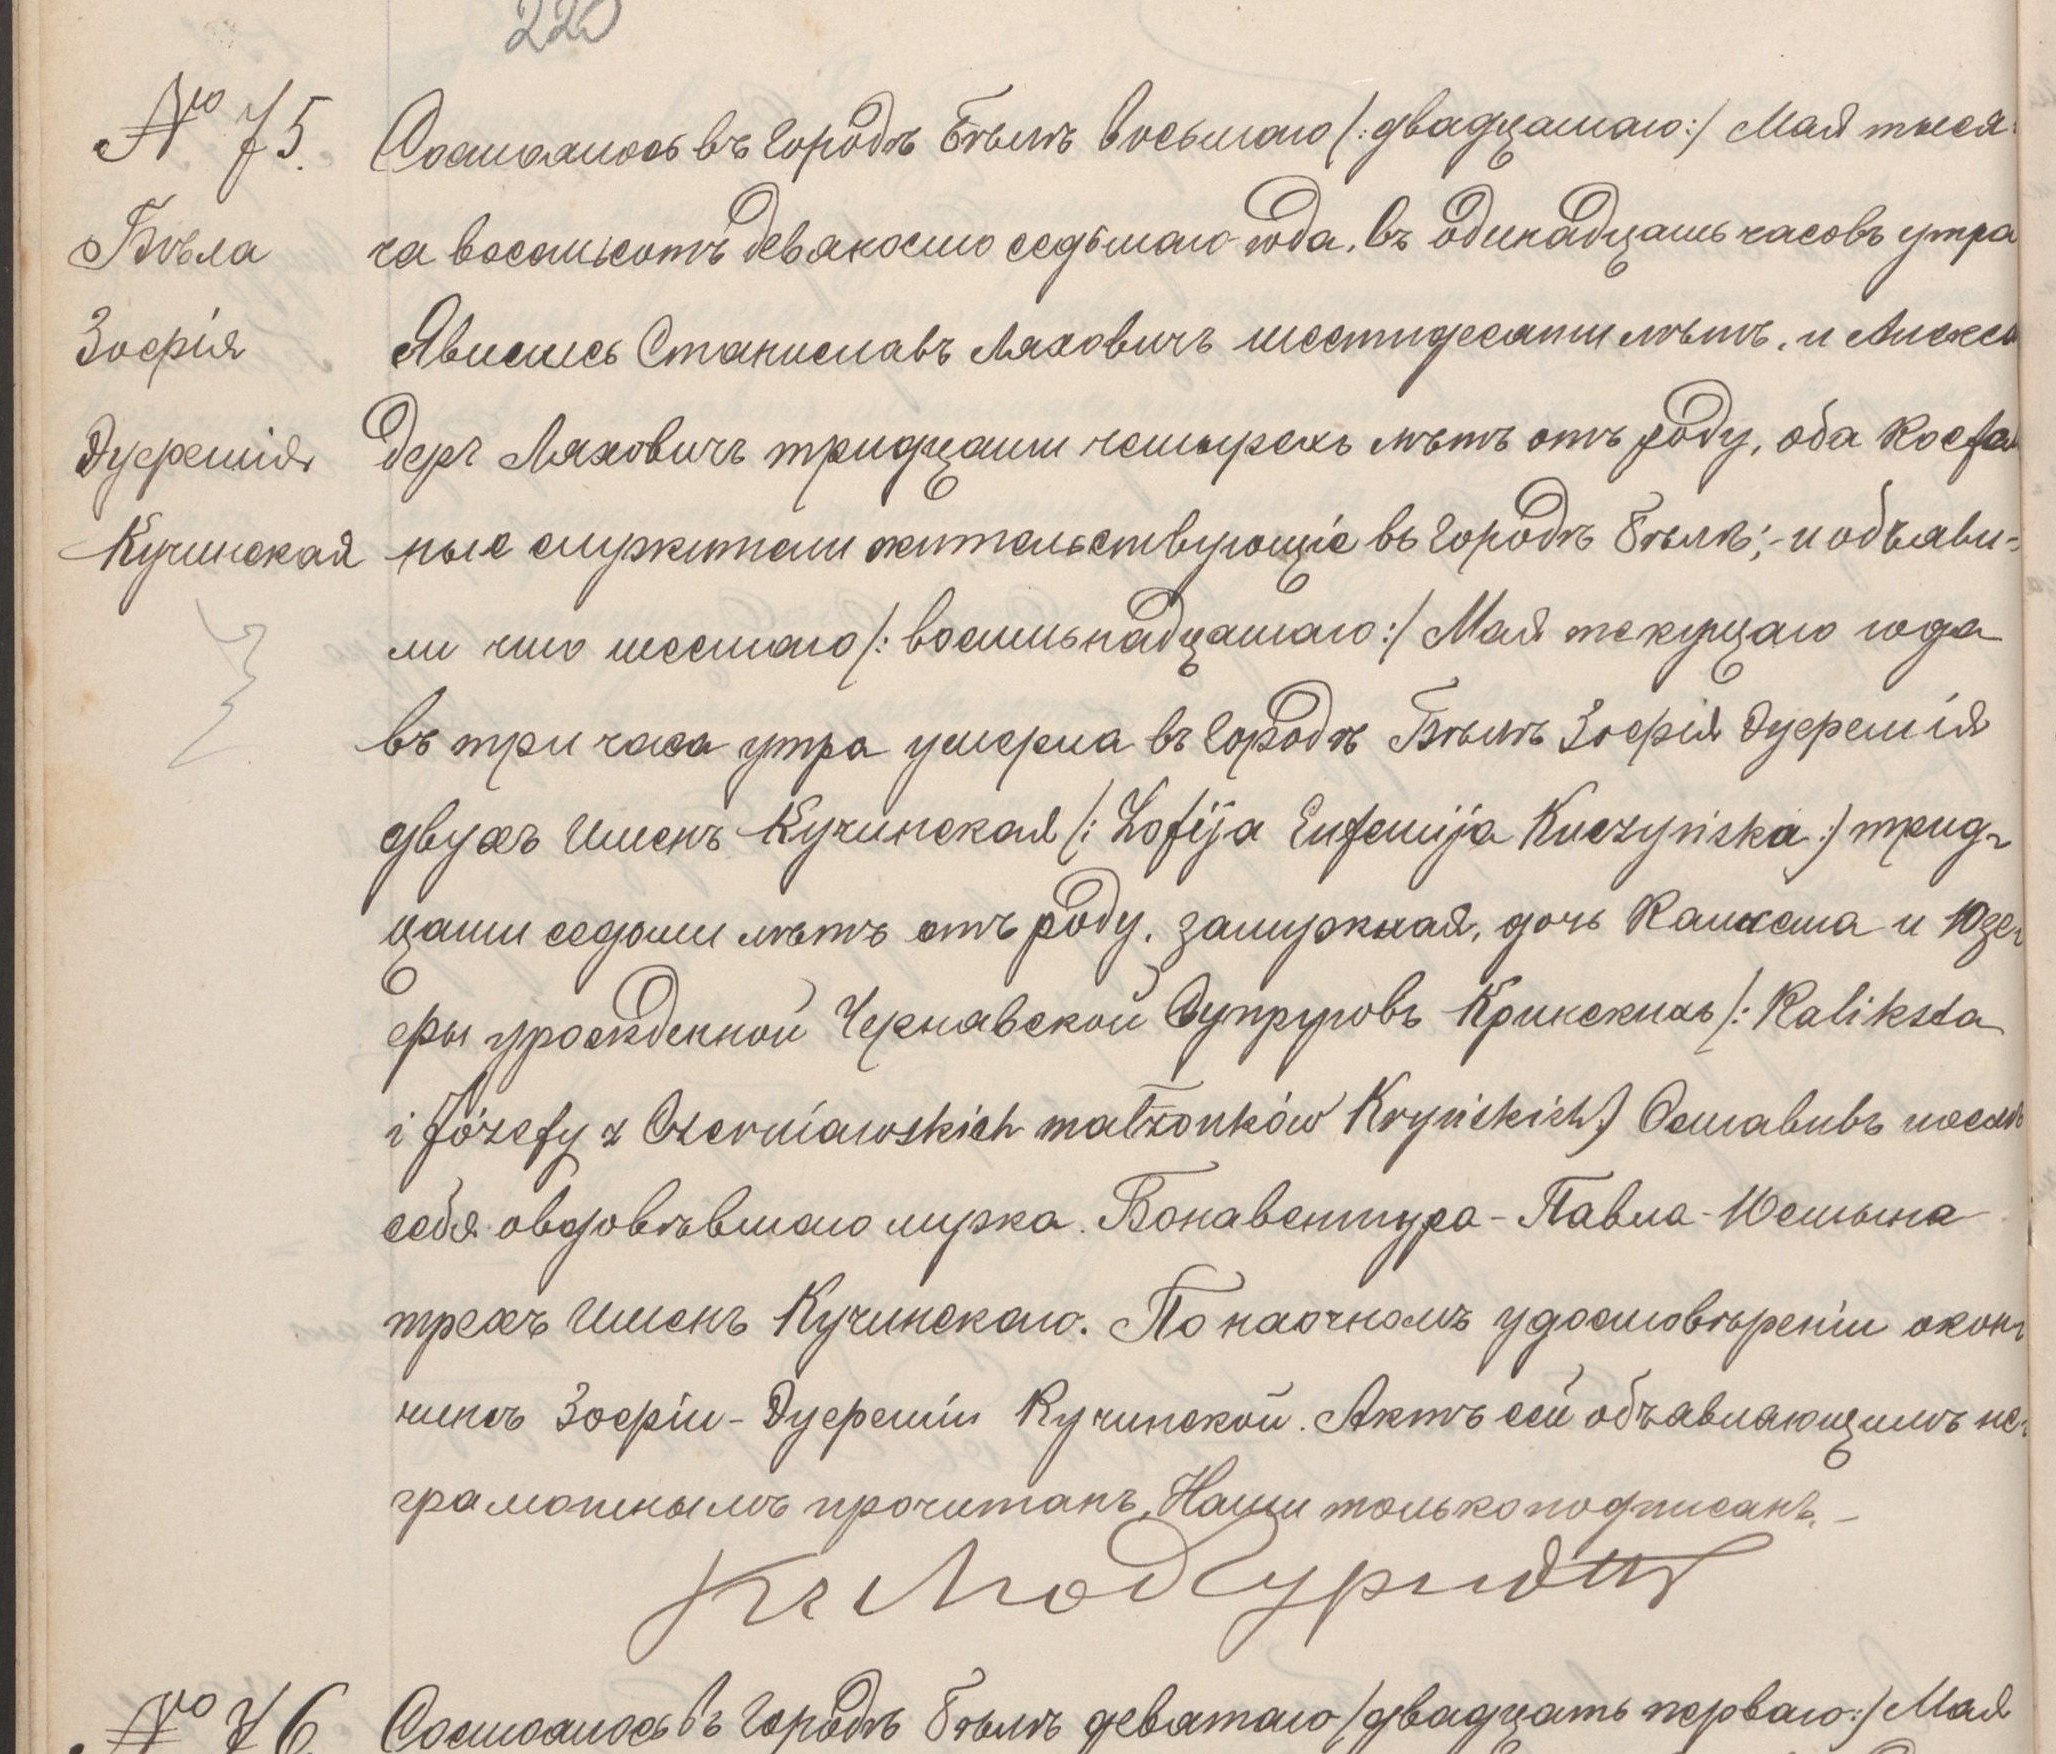 220
№ 75.
Бѣла
Зофія
Эуфемія
Кучинская
Состоялось въ городѣ Бѣлѣ восьмаго /:двадцатаго:/ Мая тыся-
ча восемьсотъ девяносто седьмаго года, въ одинадцать часовъ утра
Явились Станиславъ Ляховичъ шестидесяти лѣтъ, и Алексан
деръ Ляховичъ тридцати четырехъ лѣтъ отъ роду, оба костел
ные служители жительствующіе въ городѣ Бѣлѣ;- и объяви-
ли что шестаго /: восемьнадцатаго:/ Мая текущаго года
въ три часа утра умерла въ городѣ Бѣлѣ Зофія Эуфемія
двухъ именъ Кучинская /: Zofija Eufemija Kuczyńska :/ трид-
цати седьми лѣтъ отъ роду, замужная, дочь Каликста и Юзе-
фы урожденной Чернявской Супруговъ Кринскихъ /: Kaliksta
i Józefy z Czerniawskich małżonków Kryńskich:/ Оставивъ послѣ
себя овдовѣвшаго мужа Бонавентура-Павла-Юстына
трехъ именъ Кучинскаго. По наочномъ удостовѣреніи о кон-
чинѣ Зофіи-Эуфеміи Кучинской. Актъ сей объявляющимъ не-
грамотнымъ прочитанъ, Нами только подписанъ.-
№ 76
Состоялось въ городѣ Бѣлѣ девятаго /двадцать перваго:/ Мая